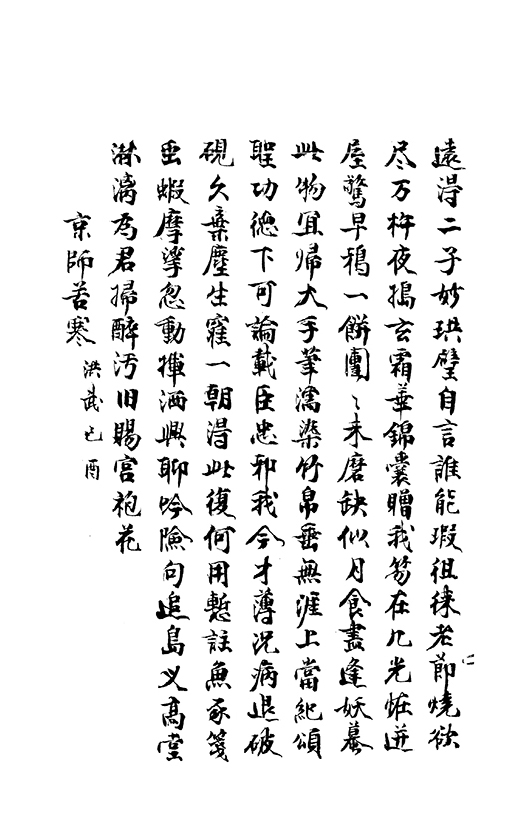 遠淂二子妙珙璧自言誰能瑕徂徠老節燒欲
尽万杵夜搗玄霜華錦囊贈我笏在几光恠迸
屋驚早鴉一餅團〻未磨缺似月食盡逢妖蟇
此物宜帰大手筆濡染竹帛垂無涯上當紀頌
聖功徳下可論載臣忠邪我今才薄況病退破
硯久棄塵生窪一朝淂此復何用慙註魚豕箋
虫蝦摩挲忽動揮洒興聊吟險句追島义高堂
淋漓為君掃醉汚旧賜宮袍花
京師苦寒 洪武己酉